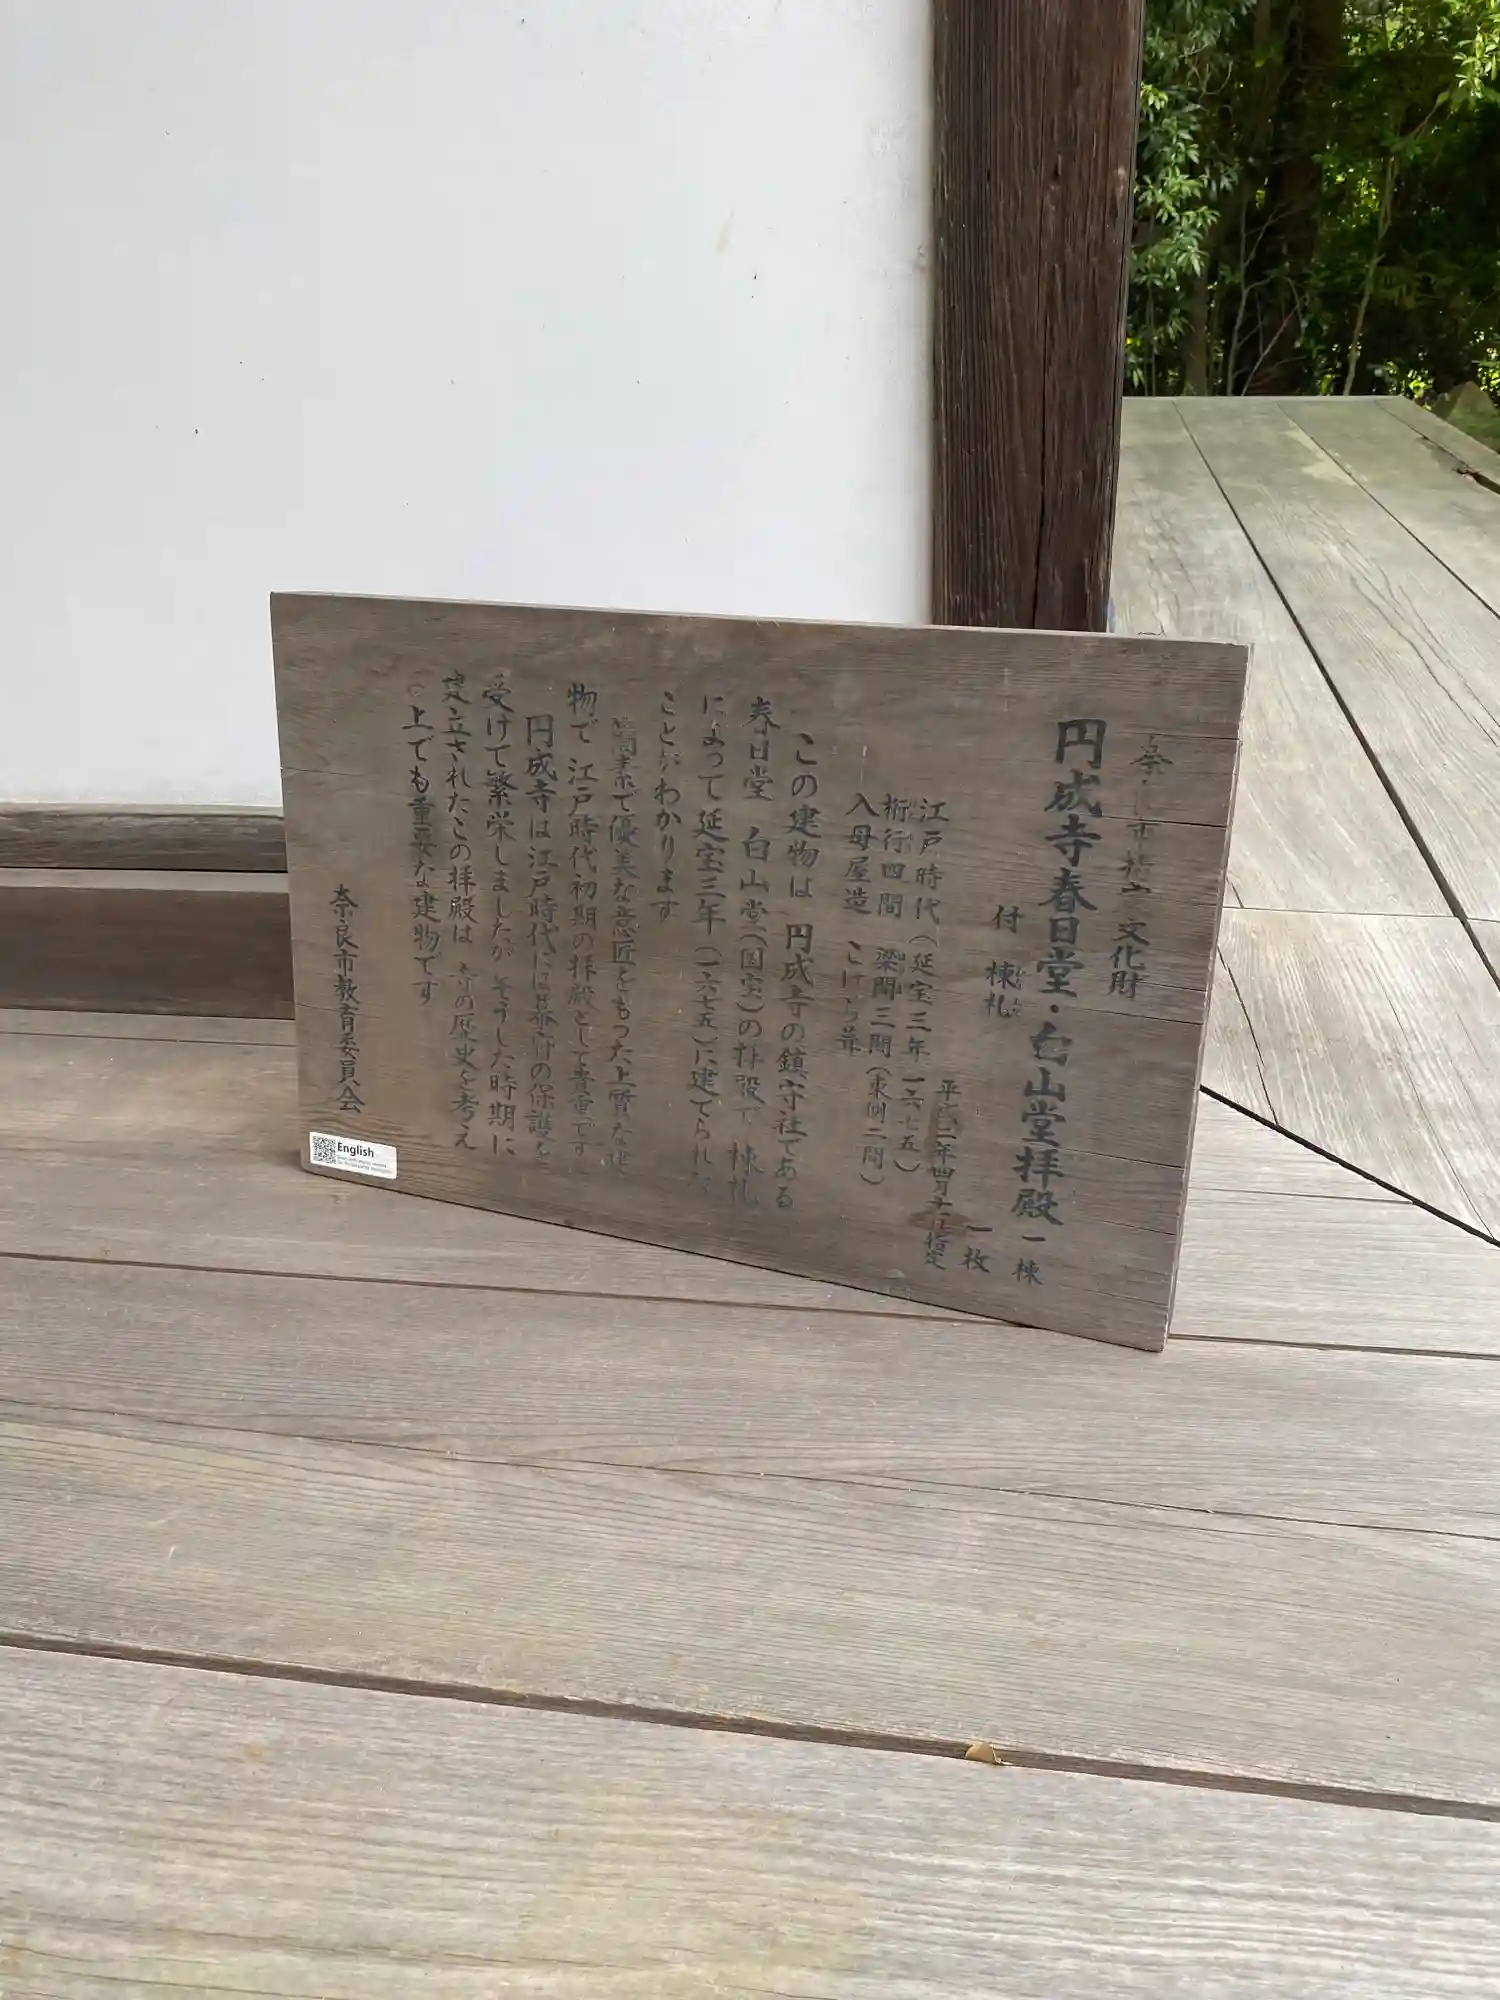 奈良市指定文化財
円成寺春日堂・白山堂拝殿 一棟
付 棟札 一枚
平成二年四月 指定
江戸時代(延宝三年 一六七五)
桁行四間 梁間三間(東側二間)
入母屋造 こけら葺
この建物は 円成寺の鎮守社である
春日堂 白山堂(国宝)の拝殿で 棟札
によって延宝三年(一六七五)に建てられた
ことがわかります
簡素で優美な意匠をもった上質な建
物で 江戸時代初期の拝殿として貴重です
円成寺は江戸時代には幕府の保護を
受けて繁栄しましたが そうした時期に
建立されたこの拝殿は 寺の歴史を考え
る上でも重要な建物です
奈良市教育委員会
English